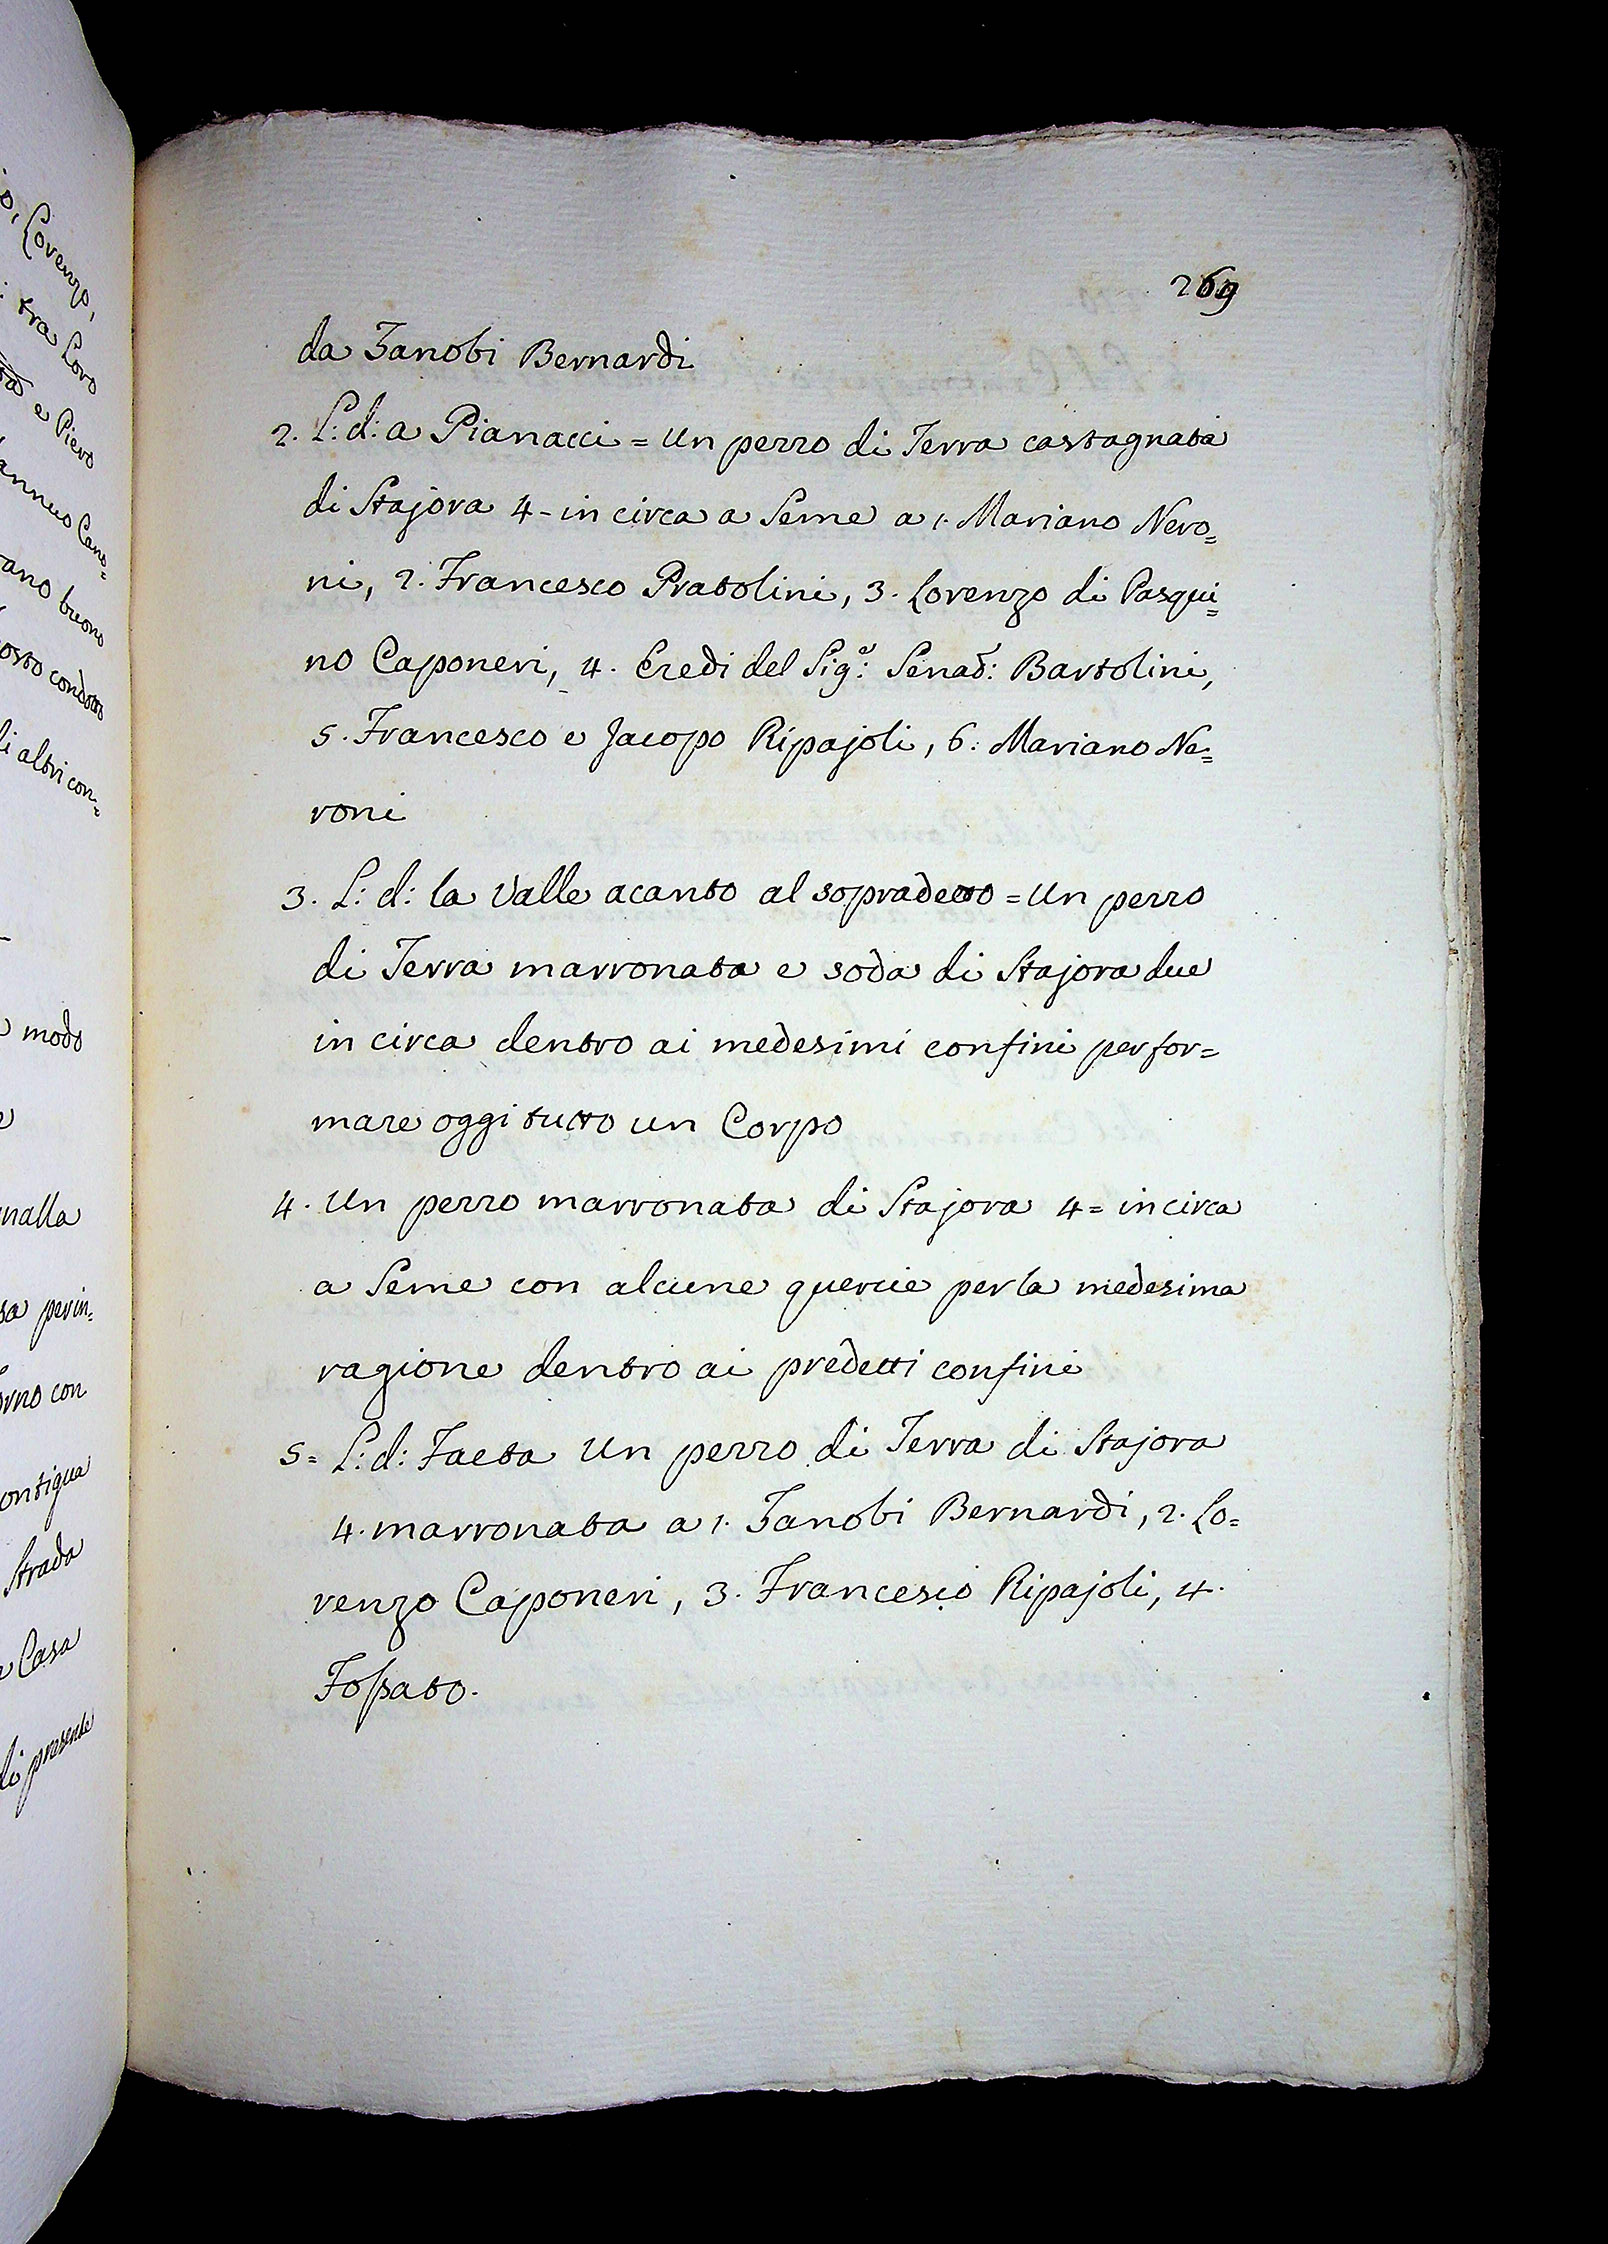 o, Lorenzo,
tra Loro
e Piero
annuo Cano=
ano buono
osto condotto
li altri con=
modo
nalla
sa per in=
orno con
ontigua
Strada
Casa
di presente
269
da Zanobi Bernardi
2. L: d: a Pianacci = Un pezzo di Terra castagnata
di Stajora 4 - in circa a Seme a 1. Mariano Nero=
ni, 2. Francesco Pratolini, 3. Lorenzo di Pasqui=
no Caponeri, 4. Eredi del Sig.e: Senad: Bartolini,
5. Francesco e Jacopo Ripajoli, 6: Mariano Ne=
roni
3. L: d: la Valle acanto al sopradetto = Un pezzo
di Terra marronata e soda di Stajora due
in circa dentro ai medesimi confini per for=
mare oggi tutto un Corpo
4. Un pezzo marronata di Stajora 4 = in circa
a Seme con alcune quercie per la medesima
ragione dentro ai predetti confini
5 = L: d: Faeta Un pezzo di Terra di Stajora
4. marronata a 1. Zanobi Bernardi, 2. Lo=
renzo Caponeri, 3. Francesco Ripajoli, 4.
Fossato.